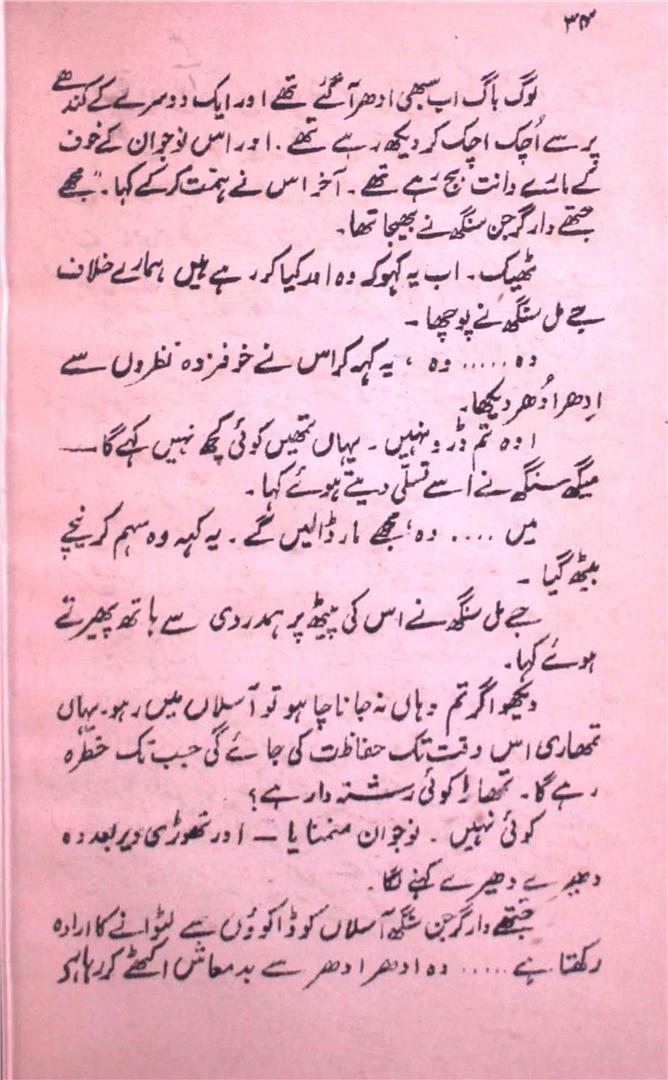 ۳۴
لوگ باگ اب سبھی ادھر آ گئے تھے اور ایک دوسرے کے کندھے
پر سے اُچک اچک کر دیکھ رہے تھے . اور اس نوجوان کے خوف
کے مارے دانت بج رہے تھے ۔ آخر اس نے ہمت کر کے کہا ۔" مجھے
جتھے دار گرجن سنگھ نے بھیجا تھا ۔
ٹھیک ۔ اب یہ کہو کہ وہ اور کیا کر رہے ہیں ہمارے خلاف
جے مل سنگھ نے پوچھا ۔
وہ ..... وہ ، یہ کہہ کر اس نے خوفزدہ نظروں سے
اِدھر اُدھر دیکھا ۔
اوہ تم ڈرو نہیں ۔ یہاں تمھیں کوئی کچھ نہیں کہے گا —
میگھ سنگھ نے اسے تسلّی دیتے ہوئے کہا ۔
میں .... وہ ؛ مجھے مار ڈالیں گے ۔ یہ کہہ وہ سہم کر نیچے
بیٹھ گیا ۔
جے مل سنگھ نے اس کی پیٹھ پر ہمدردی سے ہاتھ پھیرتے
ہوئے کہا ۔
دیکھو اگر تم وہاں نہ جانا چاہو تو آسلاں میں رہو ۔ یہاں
تمھاری اس وقت تک حفاظت کی جائے گی جب تک خطرہ
رہے گا ۔ تمھارا کوئی رشتہ دار ہے ؟
کوئی نہیں ۔ نوجوان منمنایا — اور تھوڑی دیر بعد وہ
دھیرے دھیرے کہنے لگا ۔
جتھے دار گرجن سنگھ آسلاں کو ڈاکوؤں سے لٹوانے کا ارادہ
رکھتا ہے ..... وہ ادھر ادھر سے بدمعاش اکٹھے کر رہا ہے